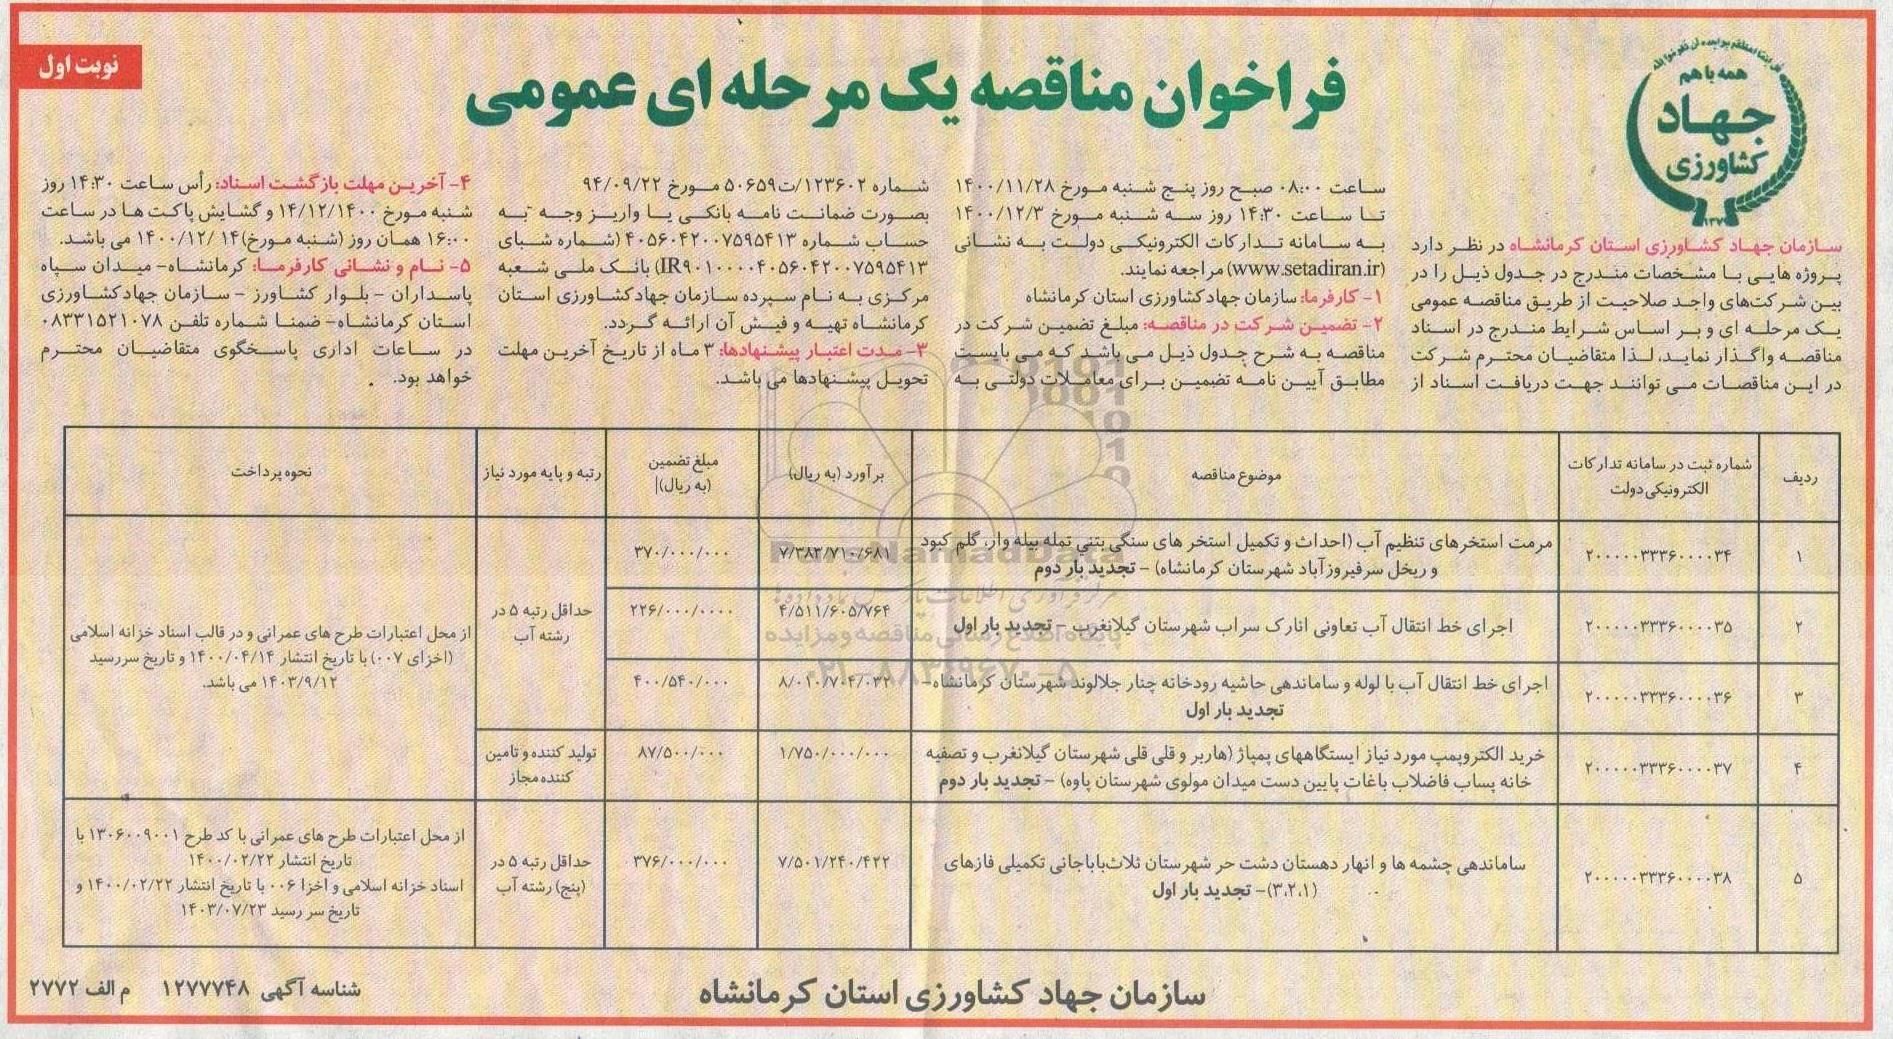 نوبت اول
همه با هم
جهاد
کشاورزی
فراخوان مناقصه یک مرحله ای عمومی
سازمان جهاد کشاورزی استان کرمانشاه در نظر دارد
پروژه هایی با مشخصات مندرج در جدول ذیل را در
بین شرکت‌های واجد صلاحیت از طریق مناقصه عمومی
یک مرحله ای و بر اساس شرایط مندرج در اسناد
مناقصه واگذار نماید، لذا متقاضیان محترم شرکت
در این مناقصات می توانند جهت دریافت اسناد از
ساعت ۰۸:۰۰ صبح روز پنج شنبه مورخ ۱۴۰۰/۱۱/۲۸
تا ساعت ۱۴:۳۰ روز سه شنبه مورخ ۱۴۰۰/۱۲/۳
به سامانه تدارکات الکترونیکی دولت به نشانی
(www.setadiran.ir) مراجعه نمایند.
۱- کارفرما: سازمان جهادکشاورزی استان کرمانشاه
۲- تضمین شرکت در مناقصه: مبلغ تضمین شرکت در
مناقصه به شرح جدول ذیل می باشد که می بایست
مطابق آیین نامه تضمین برای معاملات دولتی به
شماره ۱۲۳۶۰۲/ت۵۰۶۵۹ مورخ ۹۴/۰۹/۲۲
بصورت ضمانت نامه بانکی یا واریز وجه به
حساب شماره ۴۰۵۶۰۴۲۰۰۷۵۹۵۴۱۳ (شماره شبای
IR۹۰۱۰۰۰۰۴۰۵۶۰۴۲۰۰۷۵۹۵۴۱۳) بانک ملی شعبه
مرکزی به نام سپرده سازمان جهادکشاورزی استان
کرمانشاه تهیه و فیش آن ارائه گردد.
۳- مدت اعتبار پیشنهادها: ۳ ماه از تاریخ آخرین مهلت
تحویل پیشنهادها می باشد.
۴- آخرین مهلت بازگشت اسناد: رأس ساعت ۱۴:۳۰ روز
شنبه مورخ ۱۴/۱۲/۱۴۰۰ و گشایش پاکت ها در ساعت
۱۶:۰۰ همان روز (شنبه مورخ) ۱۴۰۰/۱۲/ ۱۴ می باشد.
۵- نام و نشانی کارفرما: کرمانشاه- میدان سپاه
پاسداران - بلوار کشاورز - سازمان جهادکشاورزی
استان کرمانشاه- ضمنا شماره تلفن ۰۸۳۳۱۵۲۱۰۷۸
در ساعات اداری پاسخگوی متقاضیان محترم
خواهد بود.
ردیف | شماره ثبت در سامانه تدارکات الکترونیکی دولت | موضوع مناقصه | برآورد (به ریال) | مبلغ تضمین (به ریال) | رتبه و پایه مورد نیاز | نحوه پرداخت
۱ ۲۰۰۰۰۰۳۳۳۶۰۰۰۰۳۴ مرمت استخرهای تنظیم آب (احداث و تکمیل استخر های سنگی بتنی تمله بیله وار، گلم کبود ۷/۳۸۳/۷۱۰/۶۸۱ ۳۷۰/۰۰۰/۰۰۰
و ریخل سرفیروزآباد شهرستان کرمانشاه) - تجدید بار دوم
۲ ۲۰۰۰۰۰۳۳۳۶۰۰۰۰۳۵ اجرای خط انتقال آب تعاونی انارک سراب شهرستان گیلانغرب - تجدید بار اول ۴/۵۱۱/۶۰۵/۷۶۴ ۲۲۶/۰۰۰/۰۰۰۰
حداقل رتبه ۵ در
رشته آب
۳ ۲۰۰۰۰۰۳۳۳۶۰۰۰۰۳۶ اجرای خط انتقال آب با لوله و ساماندهی حاشیه رودخانه چنار جلالوند شهرستان کرمانشاه- ۸/۰۱۰/۷۰۴/۰۳۲ ۴۰۰/۵۴۰/۰۰۰
تجدید بار اول
از محل اعتبارات طرح های عمرانی و در قالب اسناد خزانه اسلامی
(اخزای ۰۰۷) با تاریخ انتشار ۱۴۰۰/۰۴/۱۴ و تاریخ سررسید
۱۴۰۳/۹/۱۲ می باشد.
۴ ۲۰۰۰۰۰۳۳۳۶۰۰۰۰۳۷ خرید الکتروپمپ مورد نیاز ایستگاههای پمپاژ (هاربر و قلی قلی شهرستان گیلانغرب و تصفیه ۱/۷۵۰/۰۰۰/۰۰۰ ۸۷/۵۰۰/۰۰۰ تولید کننده و تامین
خانه پساب فاضلاب باغات پایین دست میدان مولوی شهرستان پاوه) - تجدید بار دوم کننده مجاز
۵ ۲۰۰۰۰۰۳۳۳۶۰۰۰۰۳۸ ساماندهی چشمه ها و انهار دهستان دشت حر شهرستان ثلاث‌باباجانی تکمیلی فازهای ۷/۵۰۱/۲۴۰/۴۲۲ ۳۷۶/۰۰۰/۰۰۰ حداقل رتبه ۵ در
(۳،۲،۱)- تجدید بار اول (پنج) رشته آب
از محل اعتبارات طرح های عمرانی با کد طرح ۱۳۰۶۰۰۹۰۰۱ با
تاریخ انتشار ۱۴۰۰/۰۲/۲۲
اسناد خزانه اسلامی و اخزا ۰۰۶ با تاریخ انتشار ۱۴۰۰/۰۲/۲۲ و
تاریخ سر رسید ۱۴۰۳/۰۷/۲۳
ParsNamadData
پایگاه اطلاع رسانی مناقصه و مزایده
۰۲۱-۸۸۳۴۹۶۷۰-۵
سازمان جهاد کشاورزی استان کرمانشاه
شناسه آگهی ۱۲۷۷۷۴۸ م الف ۲۷۷۲